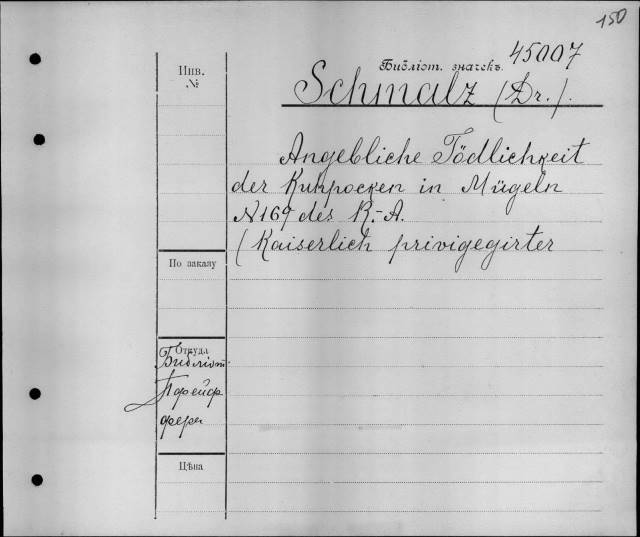 150
Инв.
№
Библіот. значекъ 45007
Schmalz (Dr.).
Angebliche Tödlichkeit
der Kuhpocken in Mügeln
№ 169 des R.-A.
(Kaiserlich privigegirter
По заказу
Откуда
Библіот.
Пфейф
фера
Цѣна